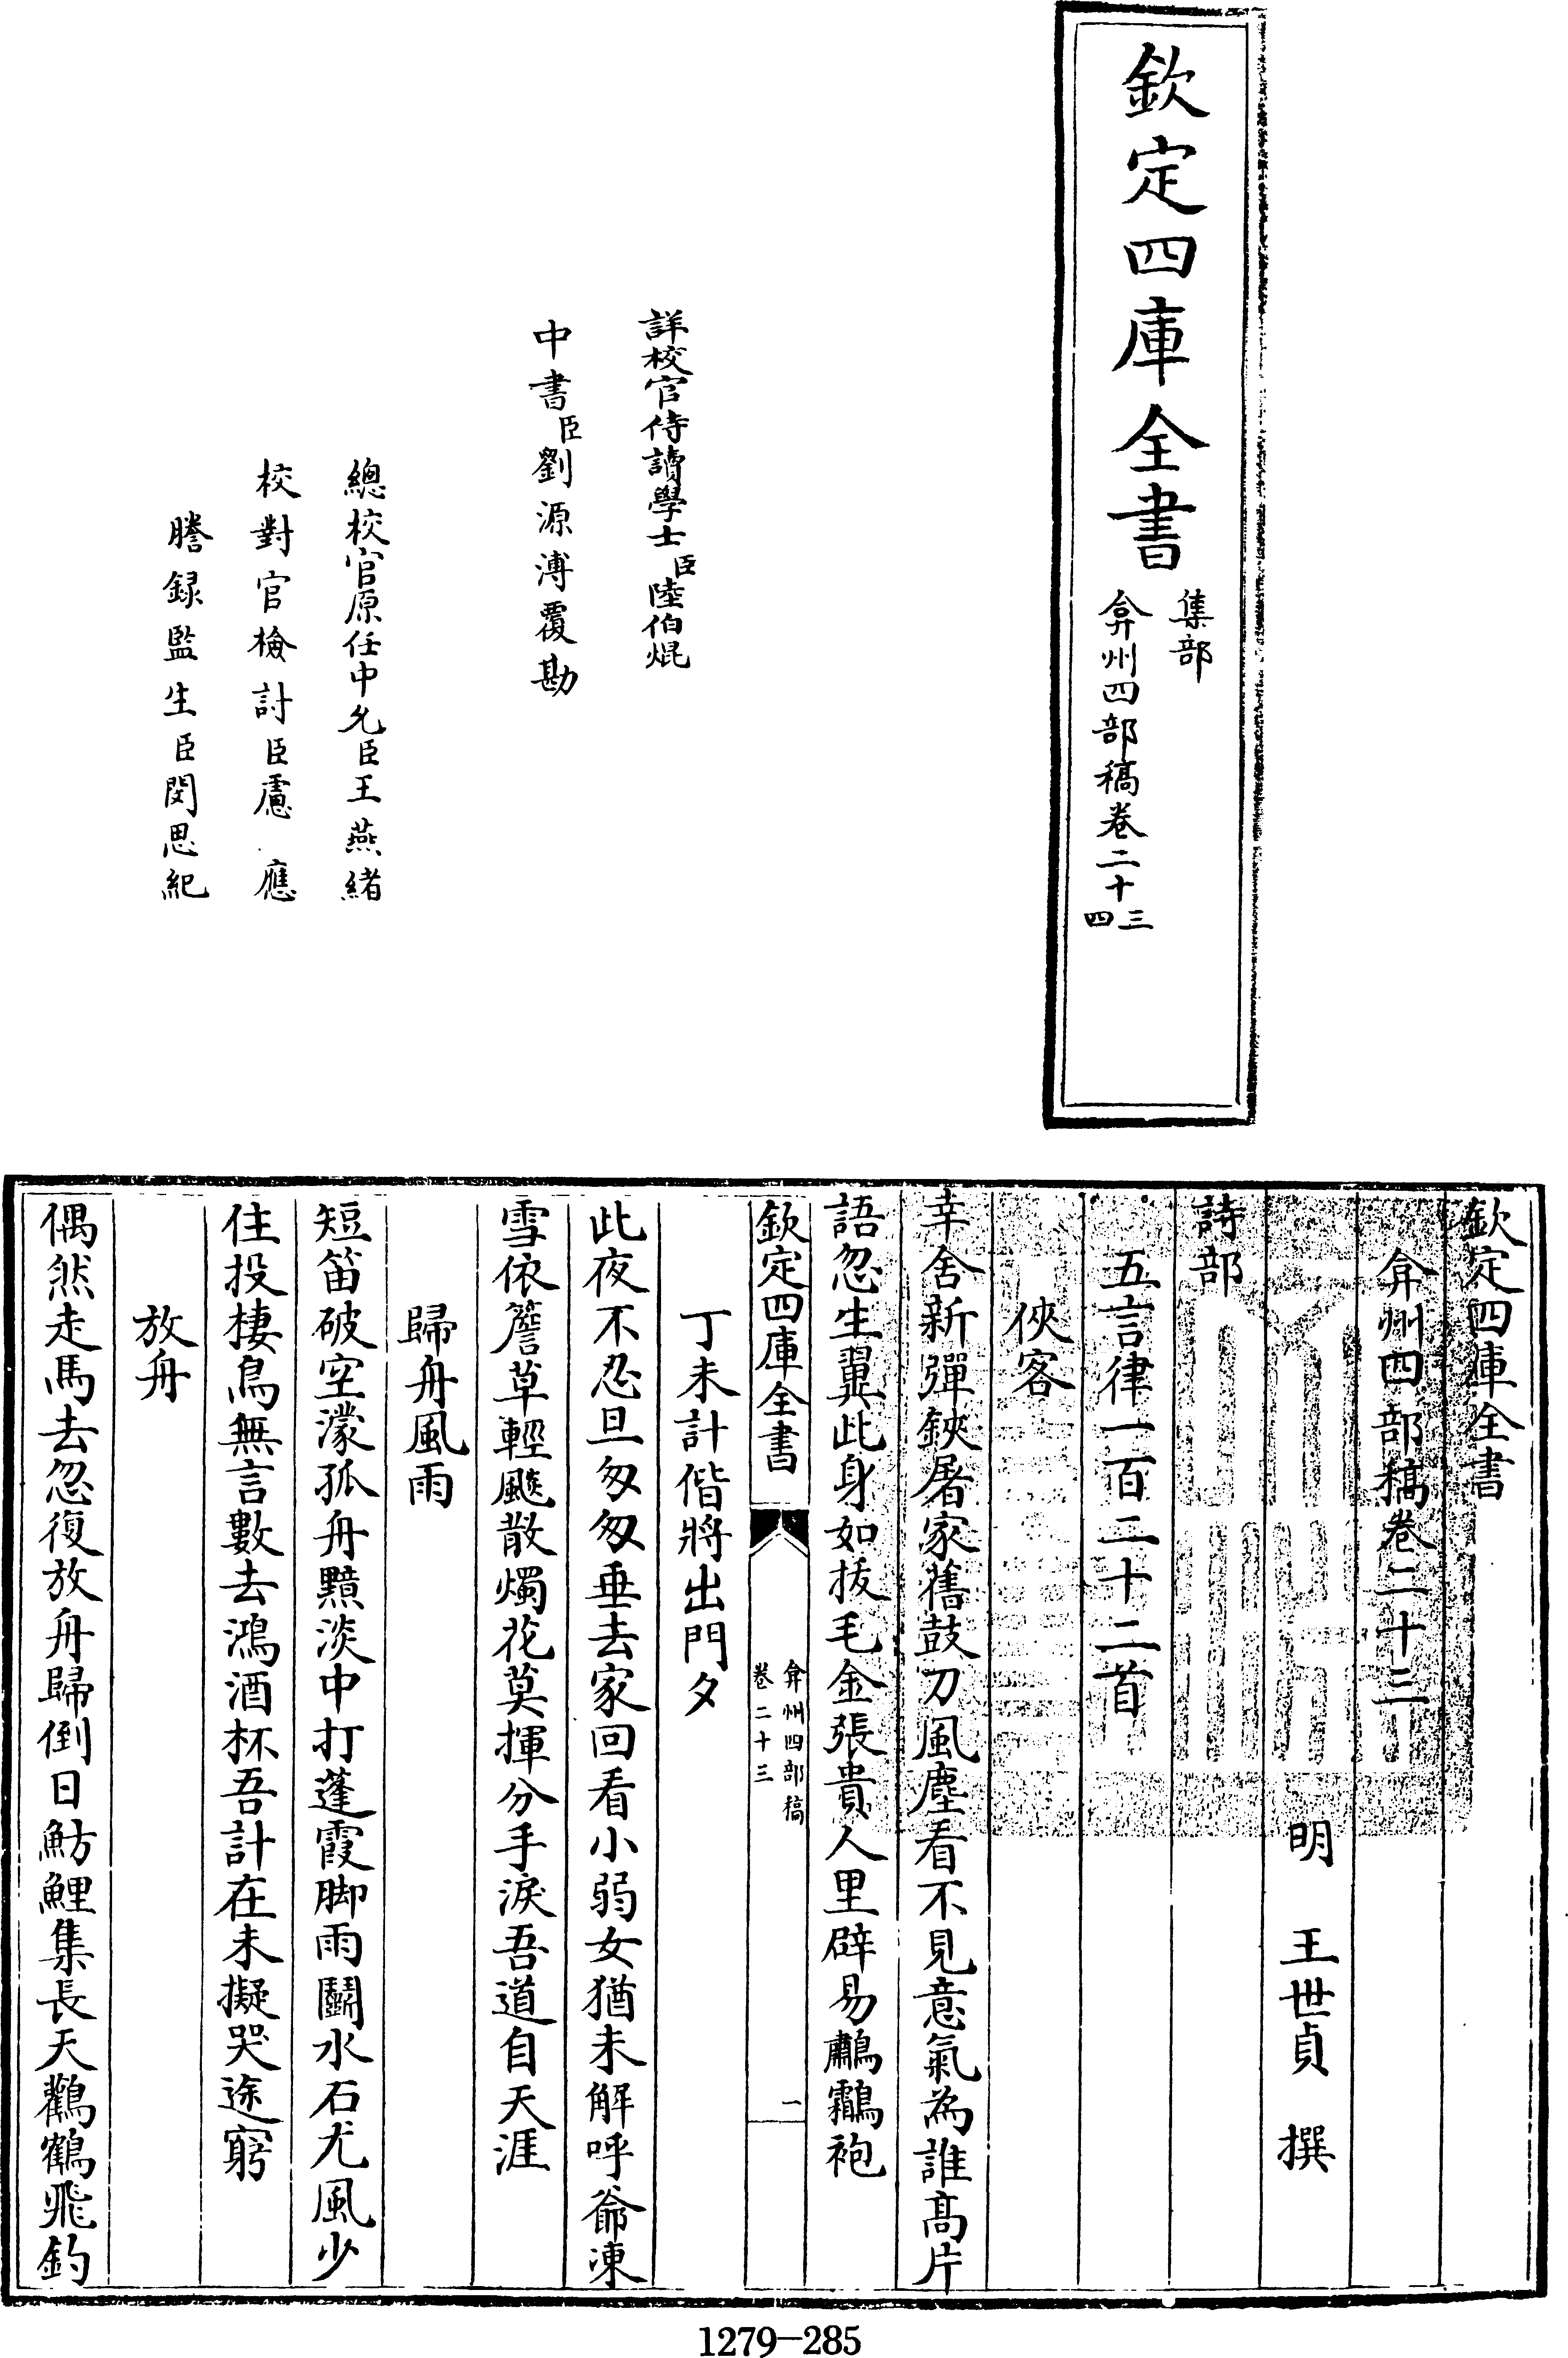 欽定四庫全書
集部
弇州四部稿卷二十三
四
詳校官侍讀學士臣陸伯焜
中書臣劉源溥覆勘
總校官原任中允臣王燕緒
校對官檢討臣盧應
謄録監生臣閔思紀
欽定四庫全書
弇州四部稿卷二十三
明 王世貞 撰
詩部
五言律一百二十二首
俠客
幸舍新彈鋏屠家舊鼓刀風塵看不見意氣為誰髙片
語忽生翼此身如拔毛金張貴人里辟易鷫鸘袍
欽定四庫全書
弇州四部稿
卷二十三
一
丁未計偕將出門夕
此夜不忍旦匆匆垂去家回看小弱女猶未解呼爺凍
雪依簷草輕飈散燭花莫揮分手淚吾道自天涯
歸舟風雨
短笛破空濛孤舟黯淡中打蓬霞脚雨鬭水石尤風少
住投棲鳥無言數去鴻酒杯吾計在未擬哭途窮
放舟
偶然走馬去忽復放舟歸倒日魴鯉集長天鸛鶴飛釣
1279-285